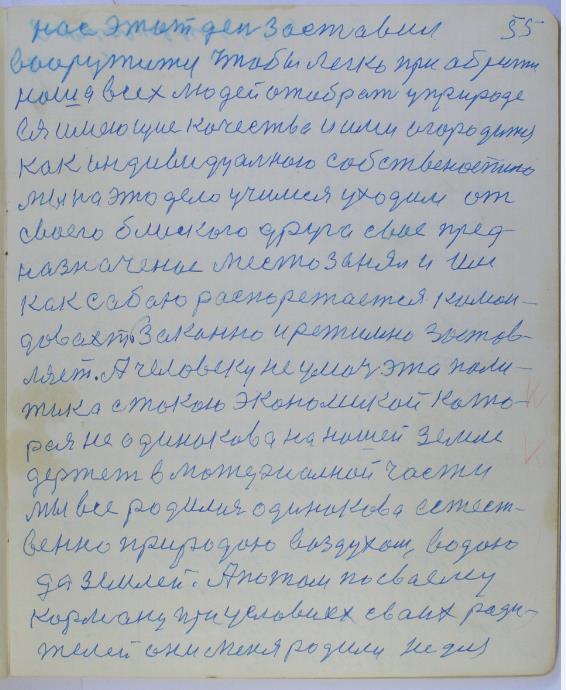 нас этот ден заставил 55
вооружити чтобы легко приобрити
наша всех людей отобрат у природе
ся имеющие качества и ими огородится
как индивидуалною собственостию
мы на это дело учимся уходим от
своего блиского друга свое пред-
назначеное место занял и им
как сабаю распорежается коман-
довахт. Законно и режимно застав-
ляет. А человеку не умочь эта поли-
тика с такою экономикой кото-
рая не одинокова на нашей земле
держет в материалной части
мы все родилия одинокова естест-
венно природою воздухом, водою
да землей. А потом по сваему
карману при условиех сваих роди-
телей они меня родили не для